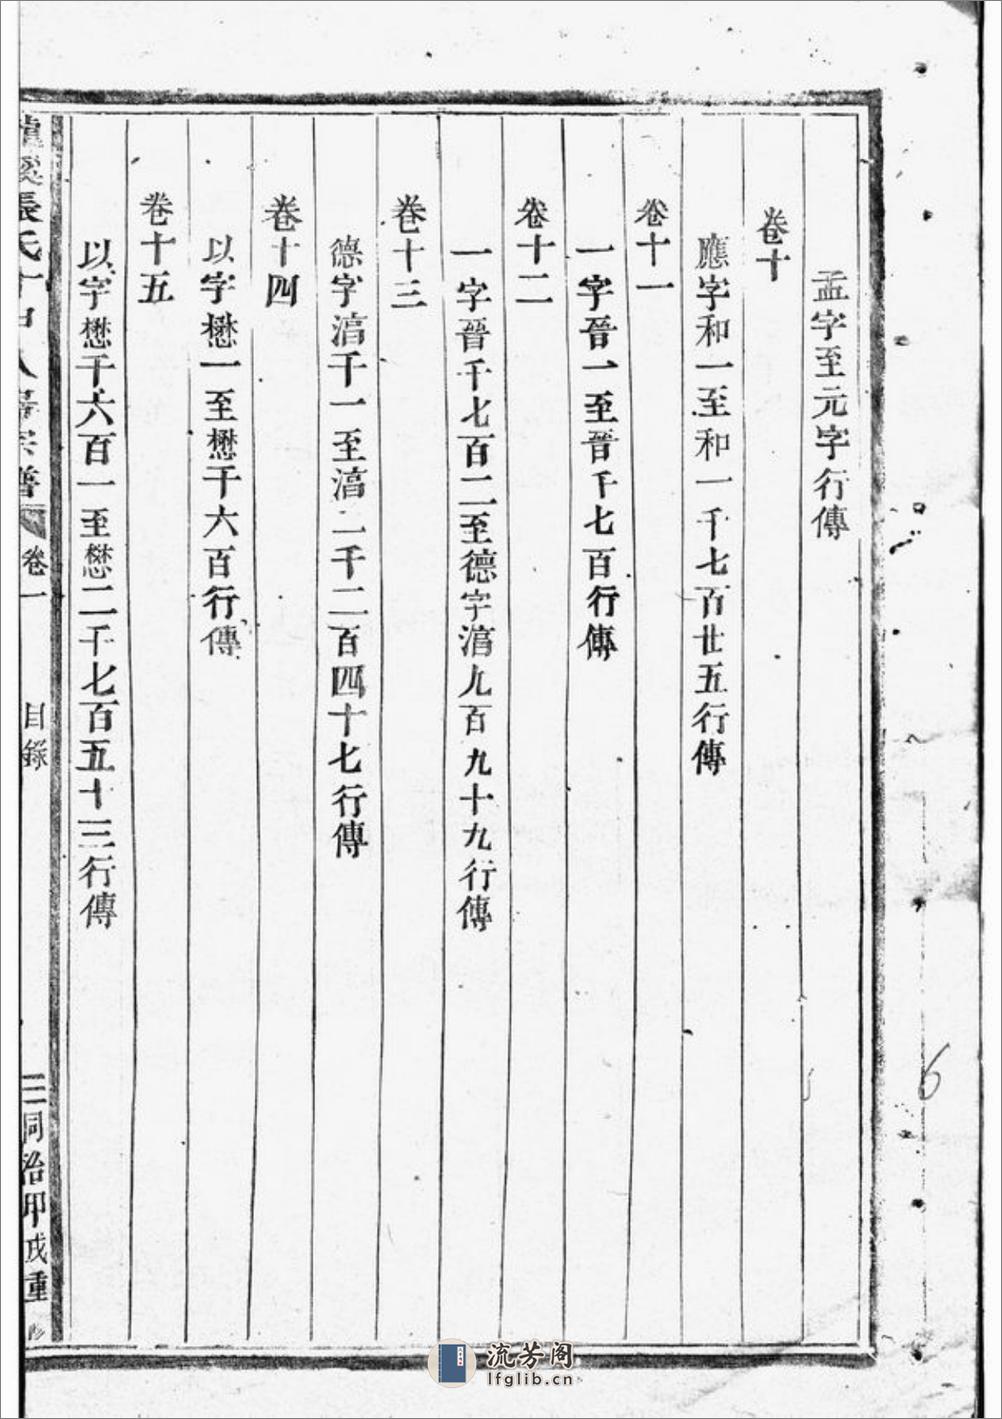 孟字至元字行傳
卷十
應字和一至和一千七百廿五行傳
卷十一
一字晉一至晉千七百行傳
卷十二
一字晉千七百二至德字湻九百九十九行傳
卷十三
德字湻千一至湻二千二百四十七行傳
卷十四
以字懋一至懋千六百行傳
卷十五
以字懋千六百一至懋二千七百五十三行傳
龍溪張氏十甲八房宗譜
卷一
目錄
三
同治甲戌重修
6
流芳阁
lfglib.cn